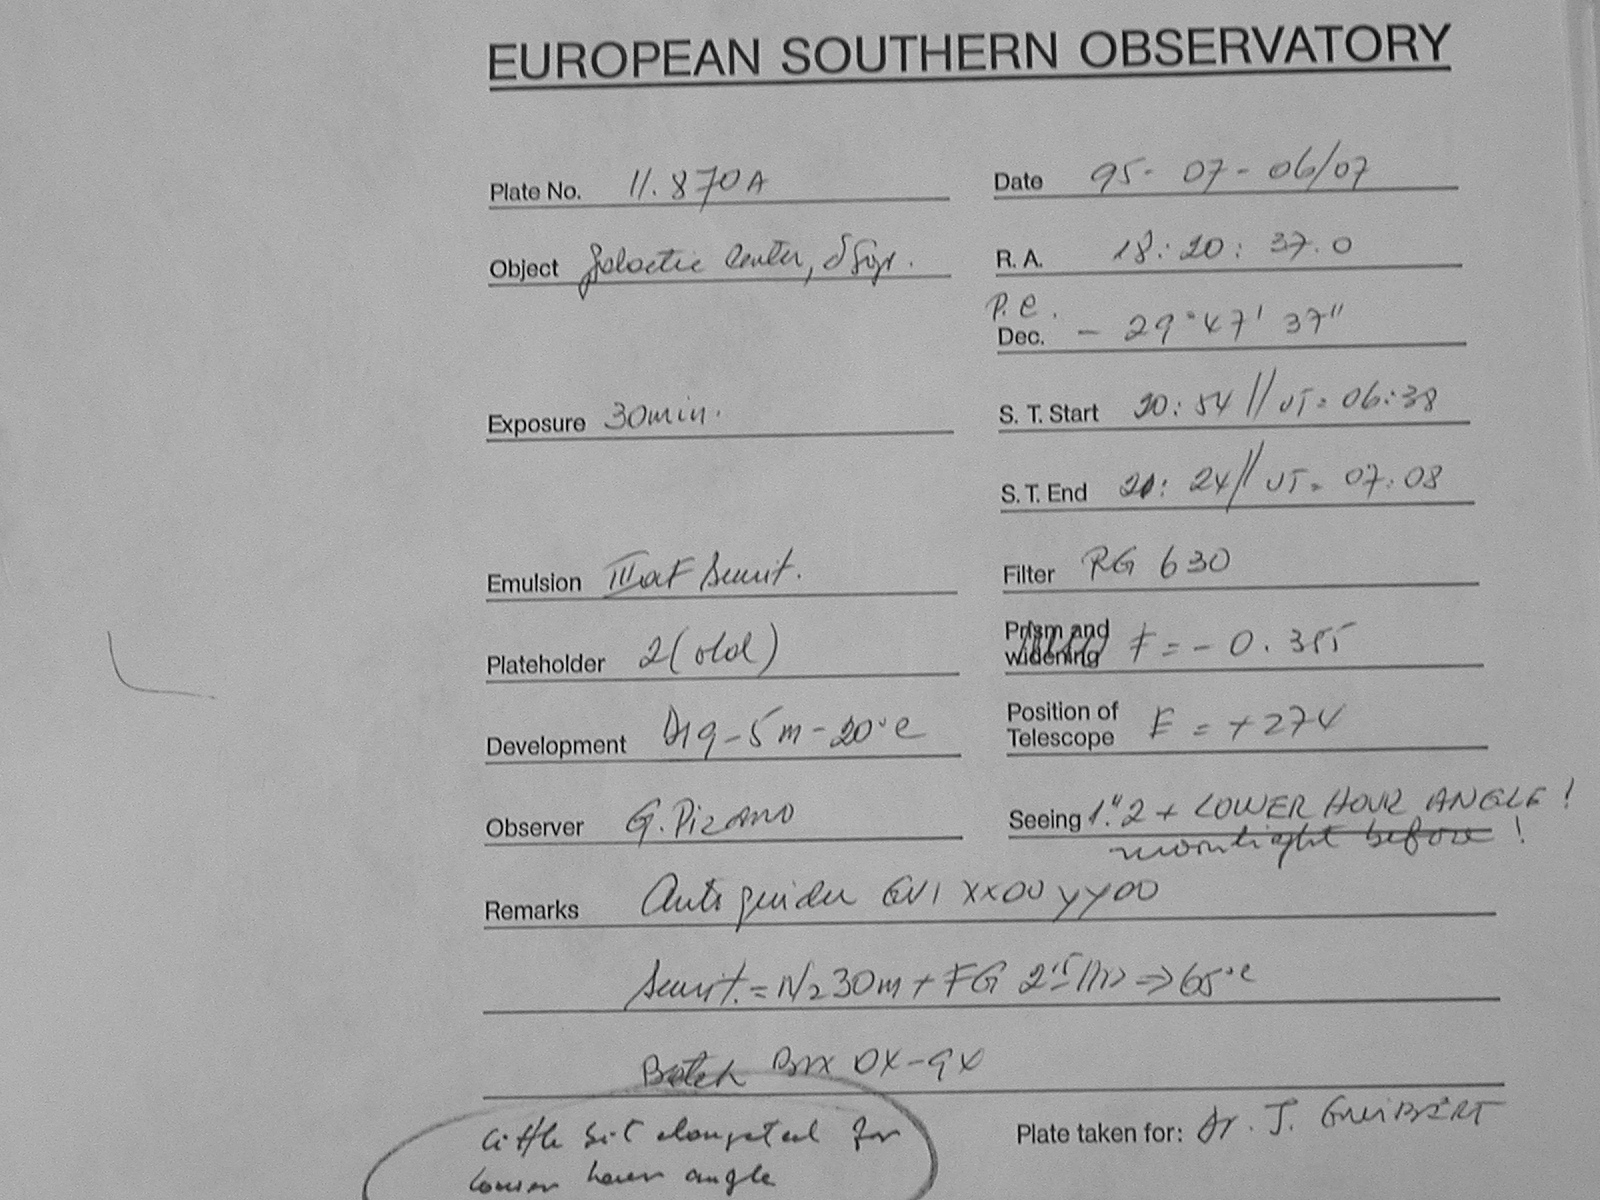 EUROPEAN SOUTHERN OBSERVATORY
Plate No. 11.870A
Date 95-07-06/07
Object Galactic Center, δ Sgr.
R. A. 18:20:37.0
P.e.
Dec. - 29°47'37"
Exposure 30min.
S. T. Start 20:54 // UT= 06:38
S. T. End 21:24 // UT= 07:08
Emulsion IIIaF sensit.
Filter RG 630
Plateholder 2 (old)
Prism and widening F = - 0.355
Development D19-5m-20°C
Position of Telescope E = +274
Observer G. Pizarro
Seeing 1."2 + LOWER HOUR ANGLE!
moonlight before!
Remarks Auto guider GV1 XX00 YY00
Sensit. = N2 30m + FG => 65°C
Batch
Little bit elongated for
lower hour angle
Plate taken for: Dr. J. GUIBERT